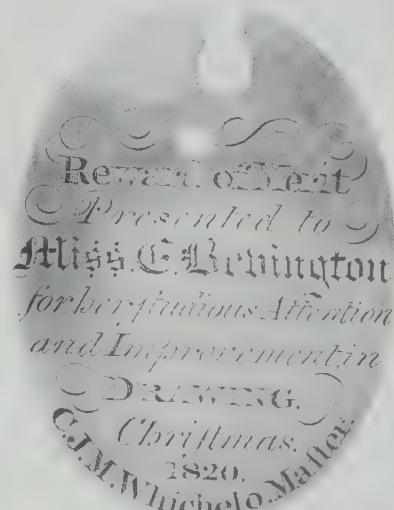 Reward of Merit
Presented to
Miss. E. Benington
for her ſtudious Attention
and Improvement in
DRAWING.
Chriſtmas.
1820.
C.J.M. Whichelo. Maſter.